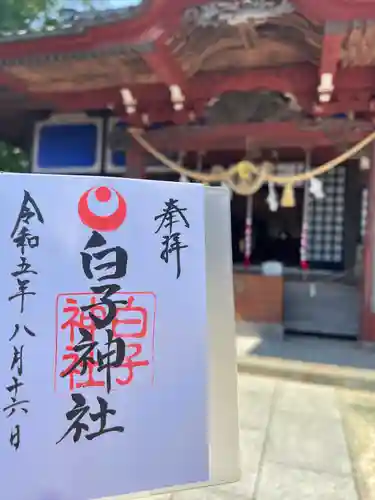 奉拝
白子神社
白子
神社
令和五年八月十六日